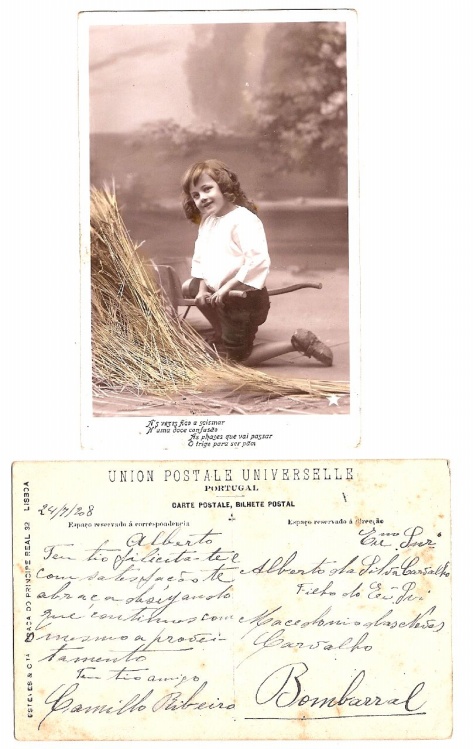 Ás vezes fico a scismar
N'uma doce confusão
As phases que vai passar
O trigo para ser pão
UNION POSTALE UNIVERSELLE
PORTUGAL
CARTE POSTALE, BILHETE POSTAL
Espaço reservado á correspondencia
Espaço reservado á direcção
ESTEVES & Cª PRAÇA DO PRINCIPE REAL 32 LISBOA
24/7/908
Alberto
Teu tio felicita-te e
com satisfação te
abraça desejando
que continues com
o mesmo aprovei-
tamento
Teu tio amigo
Camillo Ribeiro
Exmo Snr
Alberto da Silva Carvalho
Filho do Exmo Snr
Macedonio das Neves
Carvalho
Bombarral